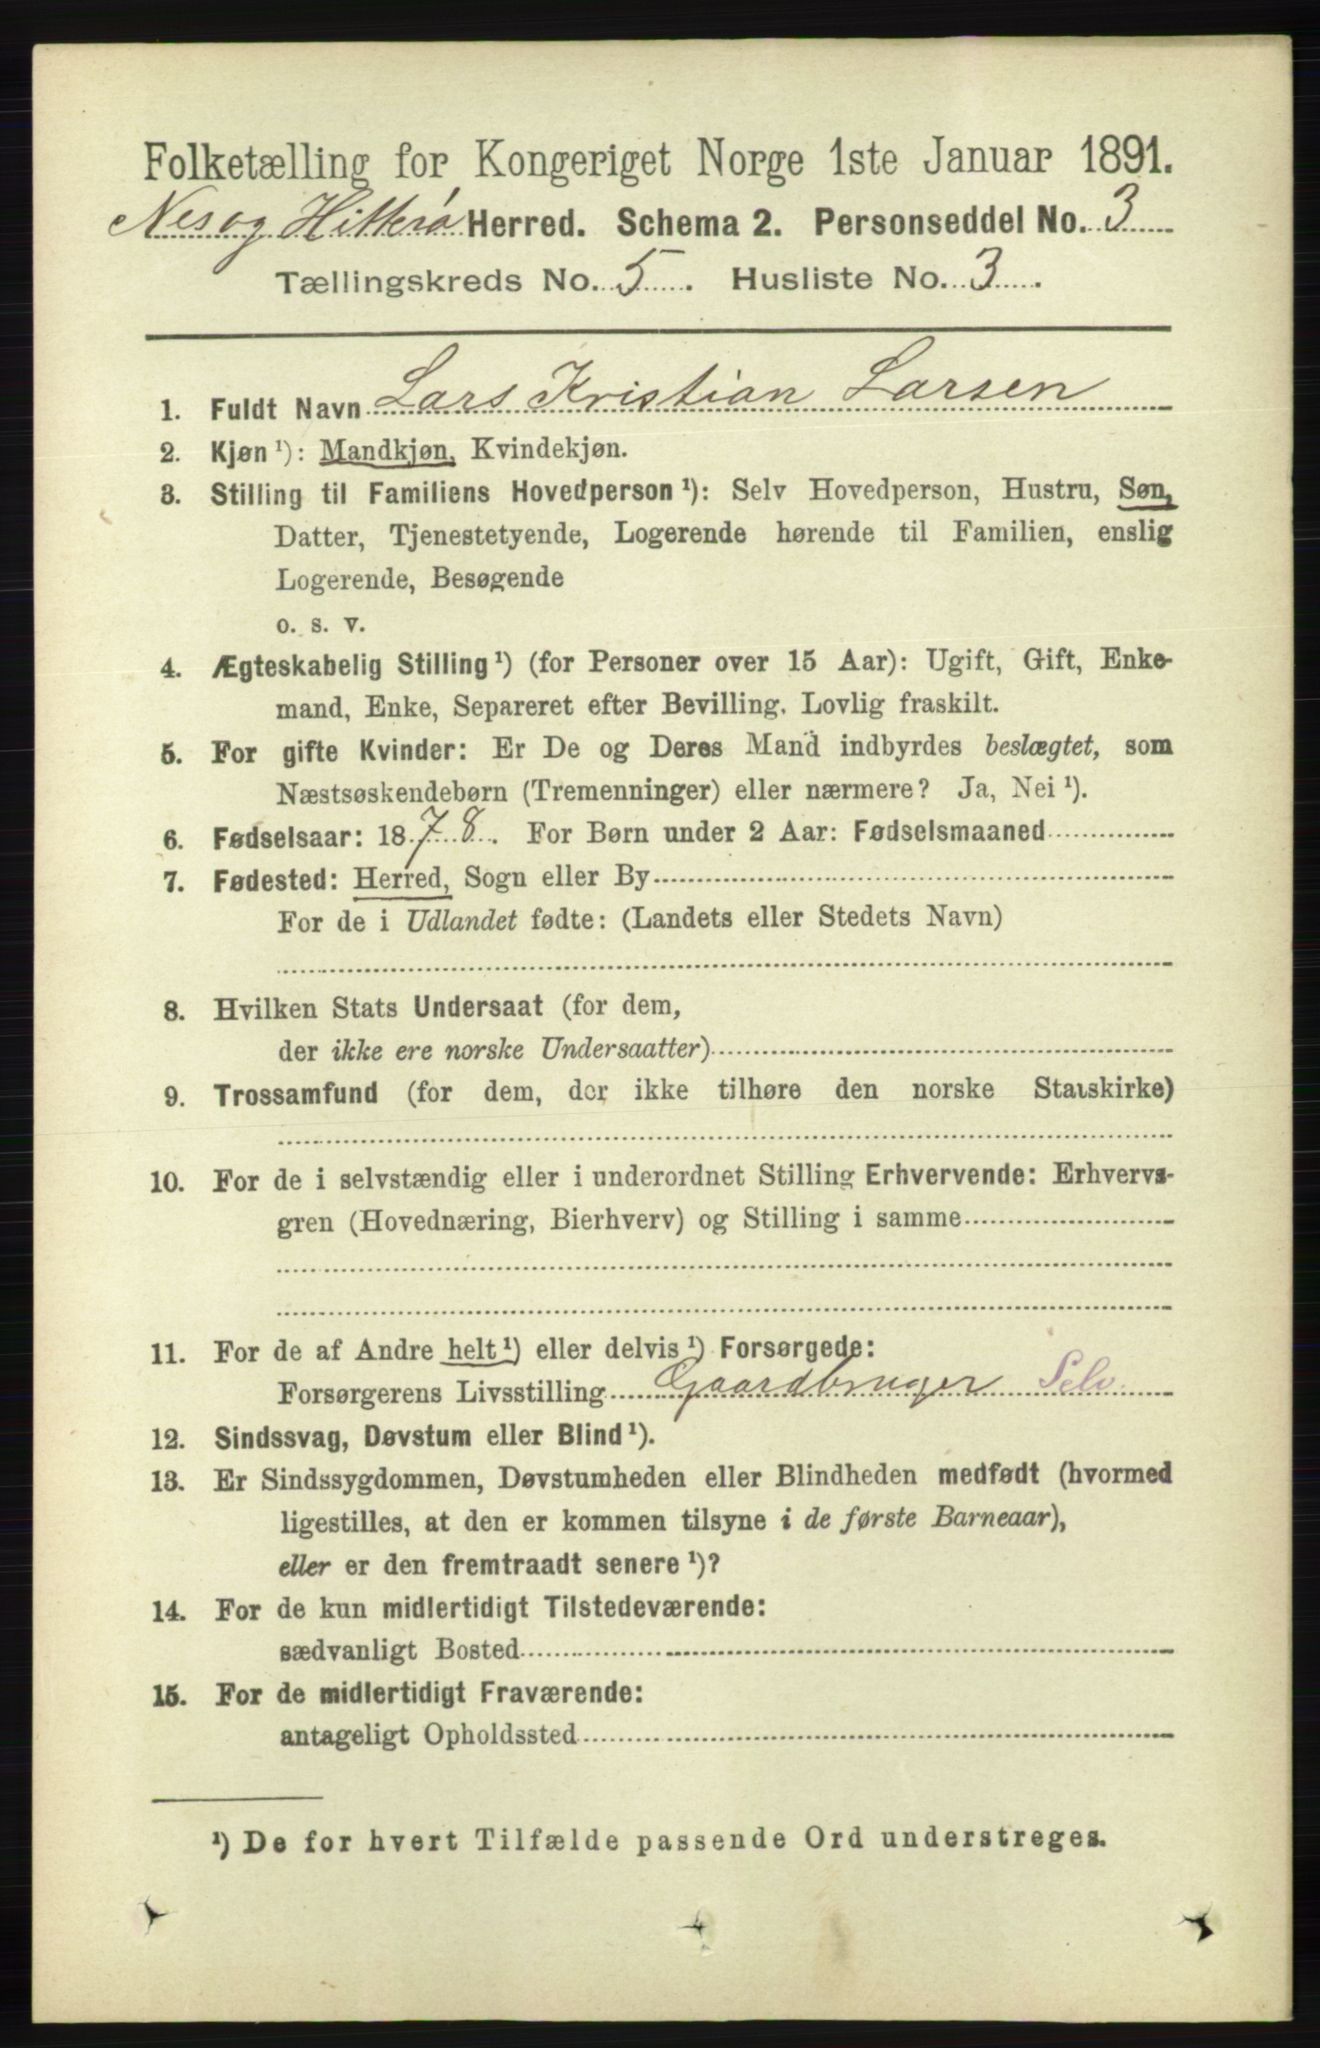 Folketælling for Kongeriget Norge 1ste Januar 1891.
Nes og Hitterø Herred. Schema 2. Personseddel No. 3
Tællingskreds No. 5. Husliste No. 3.
1. Fuldt Navn Lars Kristian Larsen
2. Kjøn¹): Mandkjøn, Kvindekjøn.
3. Stilling til Familiens Hovedperson¹): Selv Hovedperson, Hustru, Søn,
Datter, Tjenestetyende, Logerende hørende til Familien, enslig
Logerende, Besøgende
o. s. v.
4. Ægteskabelig Stilling¹) (for Personer over 15 Aar): Ugift, Gift, Enke-
mand, Enke, Separeret efter Bevilling. Lovlig fraskilt.
5. For gifte Kvinder: Er De og Deres Mand indbyrdes beslægtet, som
Næstsøskendebørn (Tremenninger) eller nærmere? Ja, Nei¹).
6. Fødselsaar: 1878. For Børn under 2 Aar: Fødselsmaaned
7. Fødested: Herred, Sogn eller By
For de i Udlandet fødte: (Landets eller Stedets Navn)
8. Hvilken Stats Undersaat (for dem,
der ikke ere norske Undersaatter)
9. Trossamfund (for dem, der ikke tilhøre den norske Statskirke)
10. For de i selvstændig eller i underordnet Stilling Erhvervende: Erhvervs-
gren (Hovednæring, Bierhverv) og Stilling i samme
11. For de af Andre helt¹) eller delvis¹) Forsørgede:
Forsørgerens Livsstilling Gaardbruger Selv
12. Sindssvag, Døvstum eller Blind¹).
13. Er Sindssygdommen, Døvstumheden eller Blindheden medfødt (hvormed
ligestilles, at den er kommen tilsyne i de første Barneaar),
eller er den fremtraadt senere¹)?
14. For de kun midlertidigt Tilstedeværende:
sædvanligt Bosted
15. For de midlertidigt Fraværende:
antageligt Opholdssted
¹) De for hvert Tilfælde passende Ord understreges.